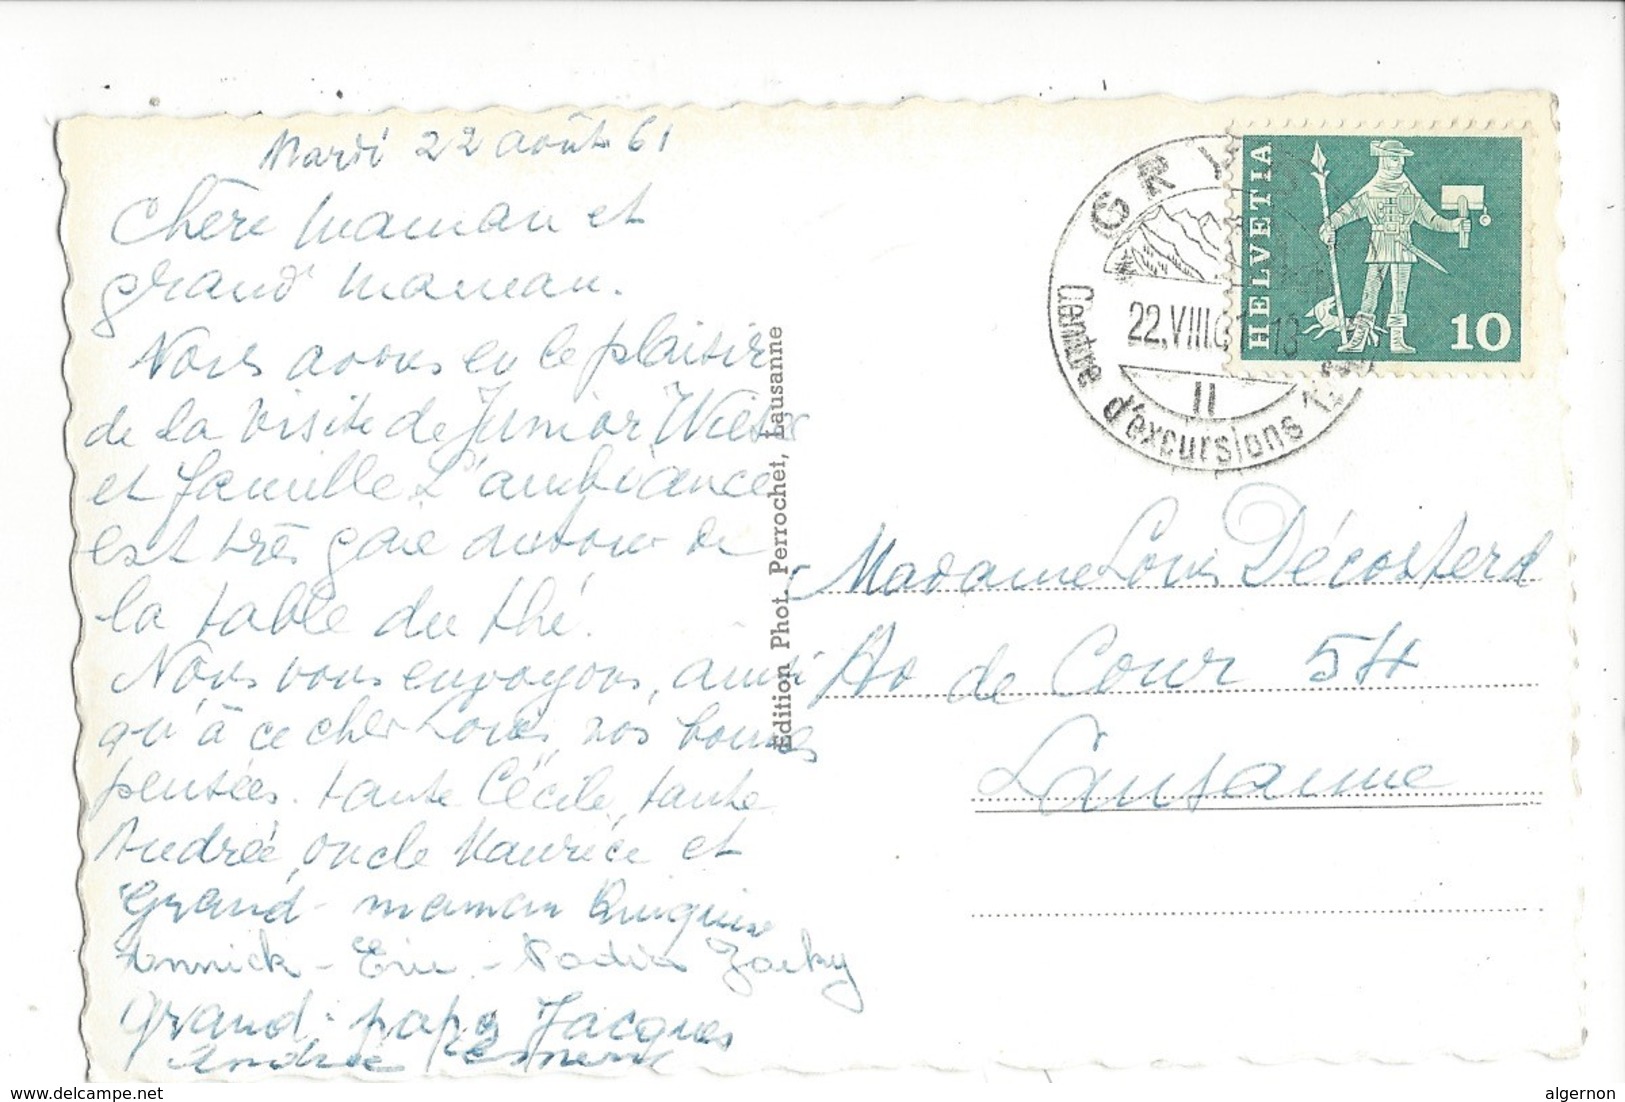 Mardi 22 août 61
Chère Maman et
grand' maman.
Nous avons eu le plaisir
de la visite de Junior
et famille L'ambiance
est très gaie autour de
la table du thé.
Nous vous envoyons, ainsi
qu'à ce cher Louis, nos bonnes
pensées. tante Cécile, tante
Andrée, oncle Maurice et
Grand-maman
Annick - Eric - Nadia
Grand-papa Jacques
Andrée
Edition Phot. Perrochet, Lausanne
GRI
22.VIII.61-18
II
Centre d'excursions
HELVETIA
10
Madame Louis Décosterd
Av de Cour 54
Lausanne
delcampe.net
algernon